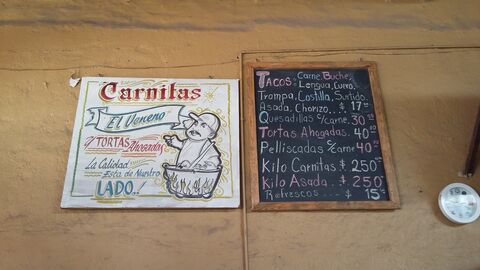 Carnitas
El Veneno
y TORTAS Ahogadas
La Calidad
Esta de Nuestro
LADO..!
TACOS: Carne, Buche,
Lengua, Cuero,
Trompa, Costilla, Surtido,
Asada, Chorizo.. $ 17
Quesadillas c/carne 30
Tortas Ahogadas. 40
Pelliscadas c/carne 40
Kilo Carnitas. $ 250
Kilo Asada. $ 250
Refrescos --- $ 15